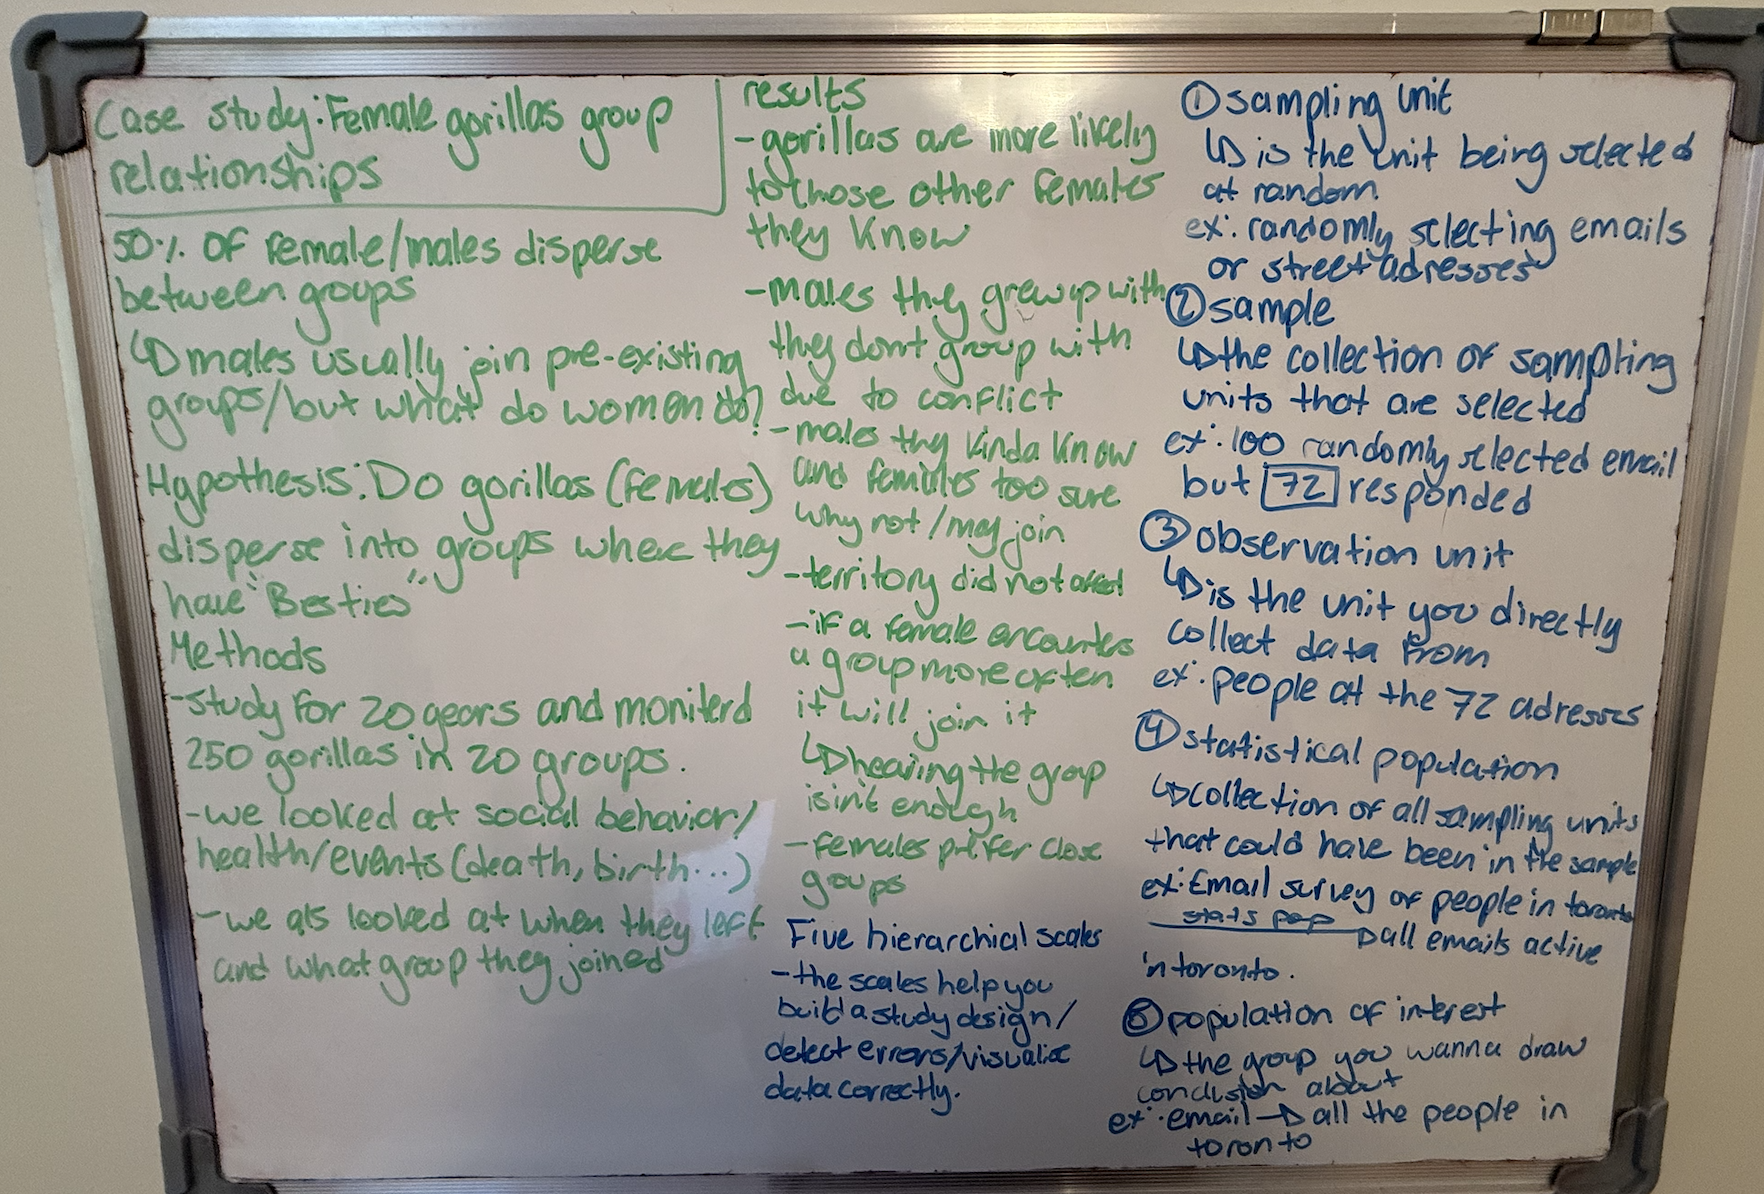 Case study: Female gorillas group
relationships
50% of female/males disperse
between groups
↳ males usually join pre-existing
groups/but what do women do?
Hypothesis: Do gorillas (females)
disperse into groups where they
have "Besties"
Methods
-study for 20 years and moniterd
250 gorillas in 20 groups.
-we looked at social behavior/
health/events (death, birth...)
-we als looked at when they left
and what group they joined
results
-gorillas are more likely
to chose other females
they know
-males they grew up with
they dont group with
due to conflict
-males they kinda know
and females too sure
why not/may join
-territory did not affect
-if a female encounters
a group more often
it will join it
↳ hearing the group
isin't enough
-females prefer close
groups
Five hierarchial scales
-the scales help you
build a study design/
detect errors/visualize
data correctly.
① sampling unit
↳ is the unit being selected
at random
ex: randomly selecting emails
or street adresses
② sample
↳ the collection of sampling
units that are selected
ex: 100 randomly selected email
but 72 responded
③ observation unit
↳ is the unit you directly
collect data from
ex: people at the 72 adresses
④ statistical population
↳ collection of all sampling units
that could have been in the sample
ex: Email survey of people in toronto
stats pop → all emails active
in toronto.
⑤ population of interest
↳ the group you wanna draw
conclusion about
ex: email → all the people in
toronto